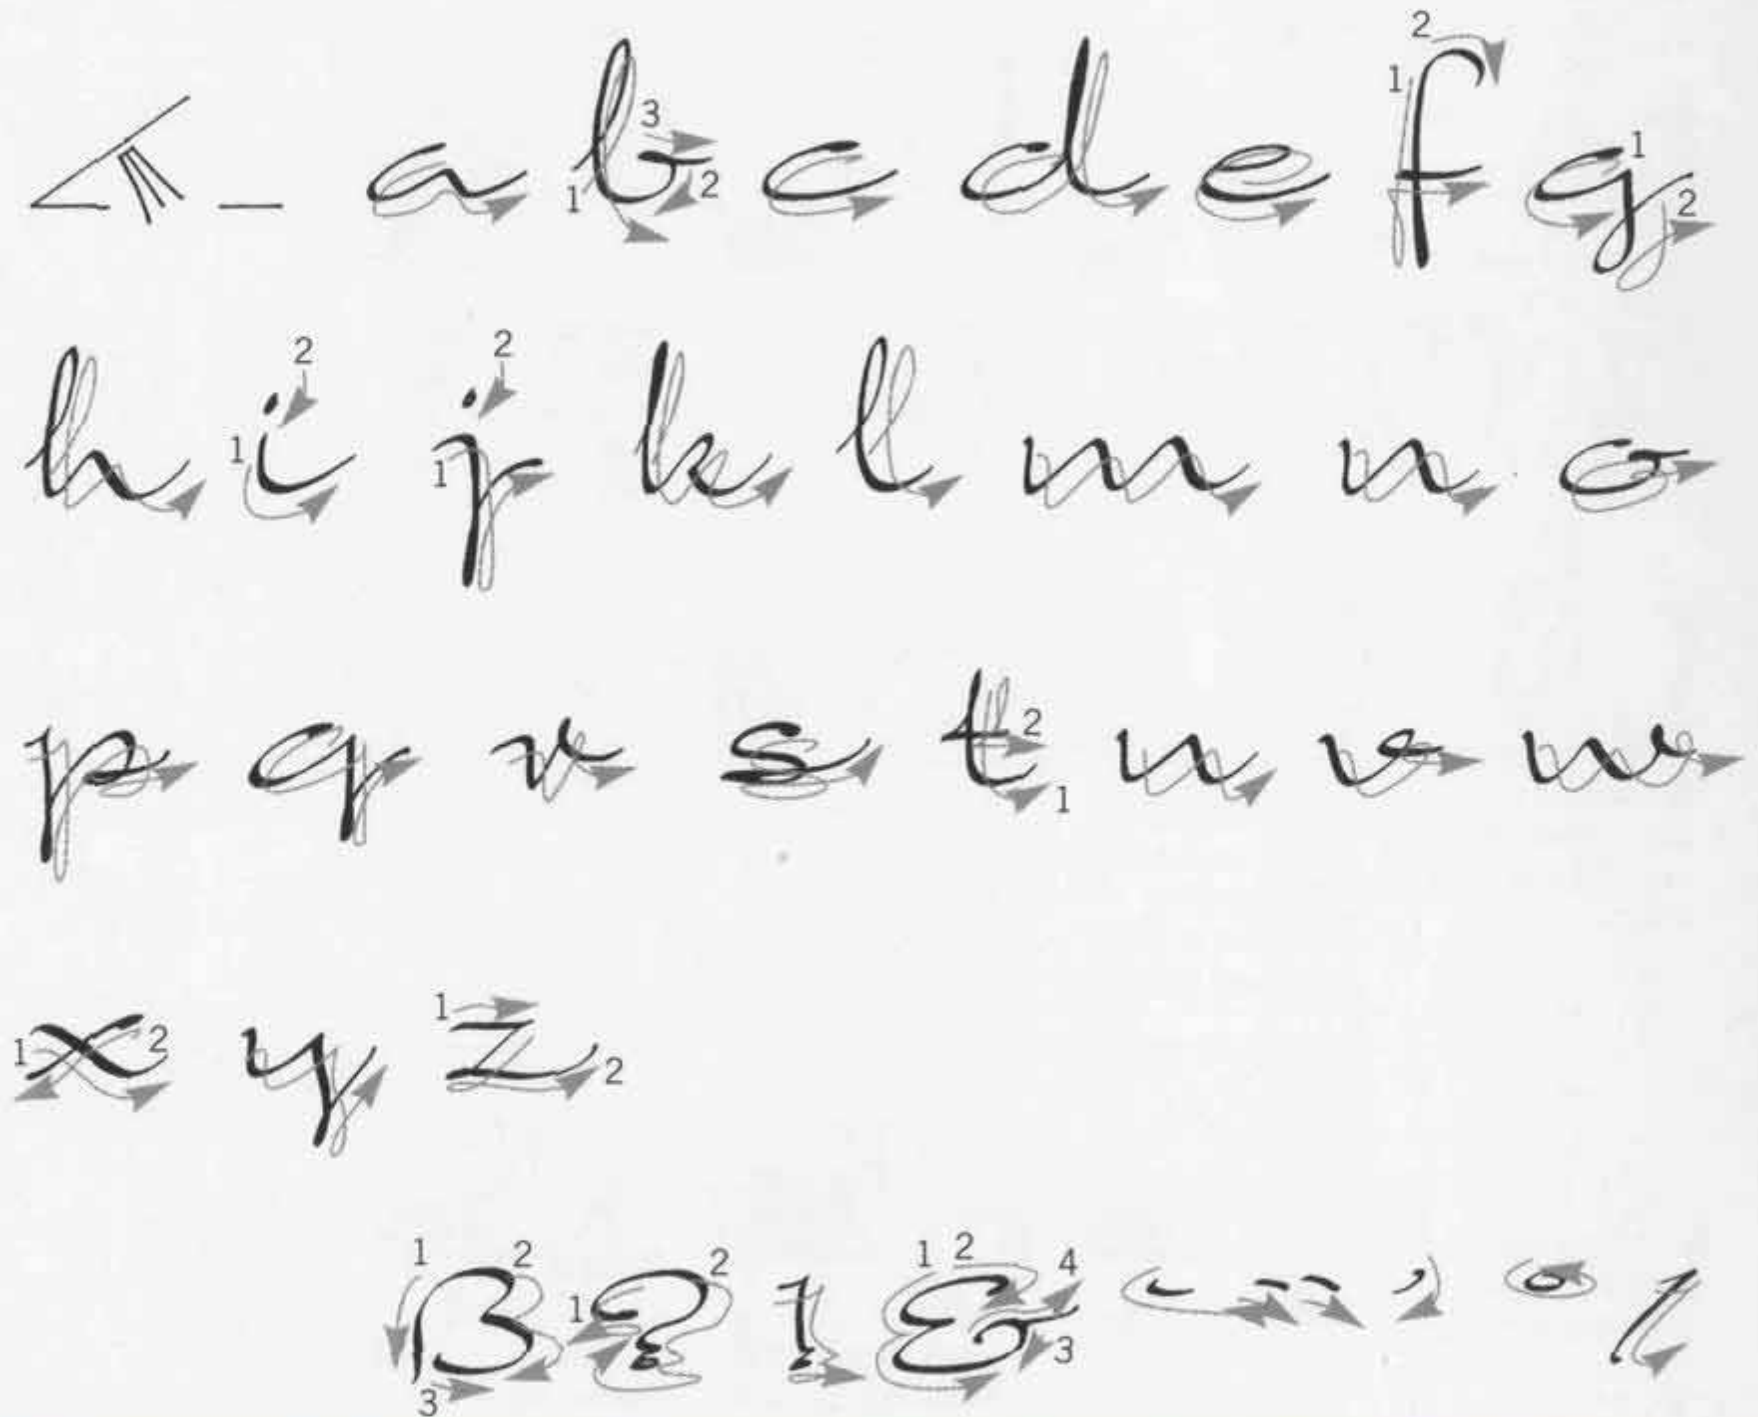 a b c d e f g
h i j k l m n o
p q r s t u v w
x y z
ß ? ! &